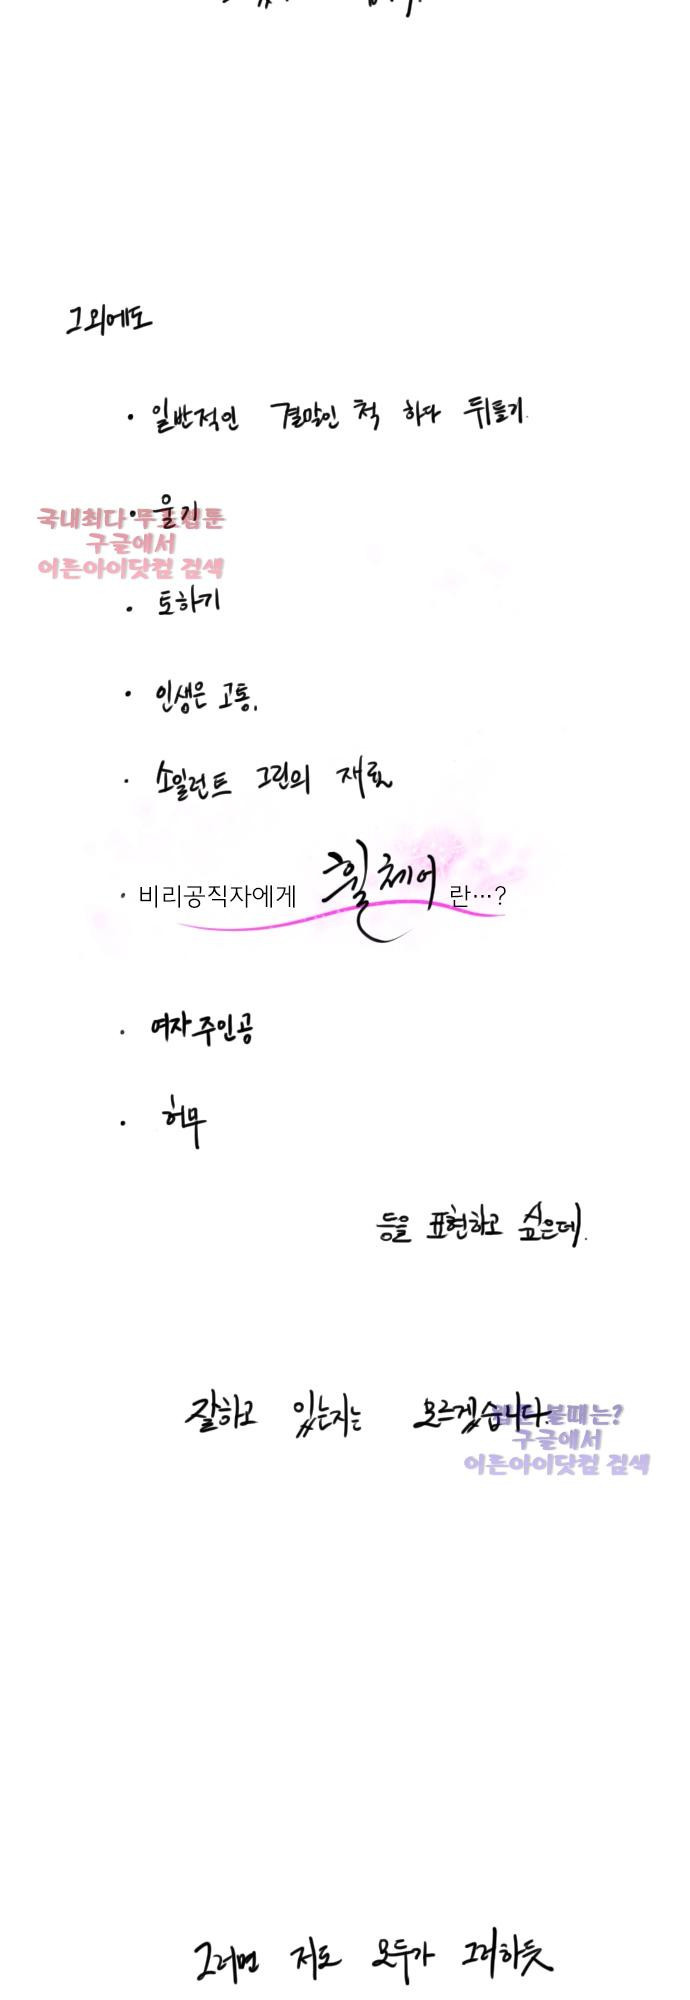 그외에도
· 일반적인 결말인 척 하다 뒤틀기.
· 울기
국내최다 무료웹툰
구글에서
이른아이닷컴 검색
· 토하기
· 인생은 고통.
· 소일런트 그린의 재료
· 비리공직자에게 휠체어란…?
· 여자주인공
· 허무
등을 표현하고 싶은데.
잘하고 있는지는 모르겠습니다.
볼때는?
구글에서
이른아이닷컴 검색
그러면 저도 모두가 그러하듯